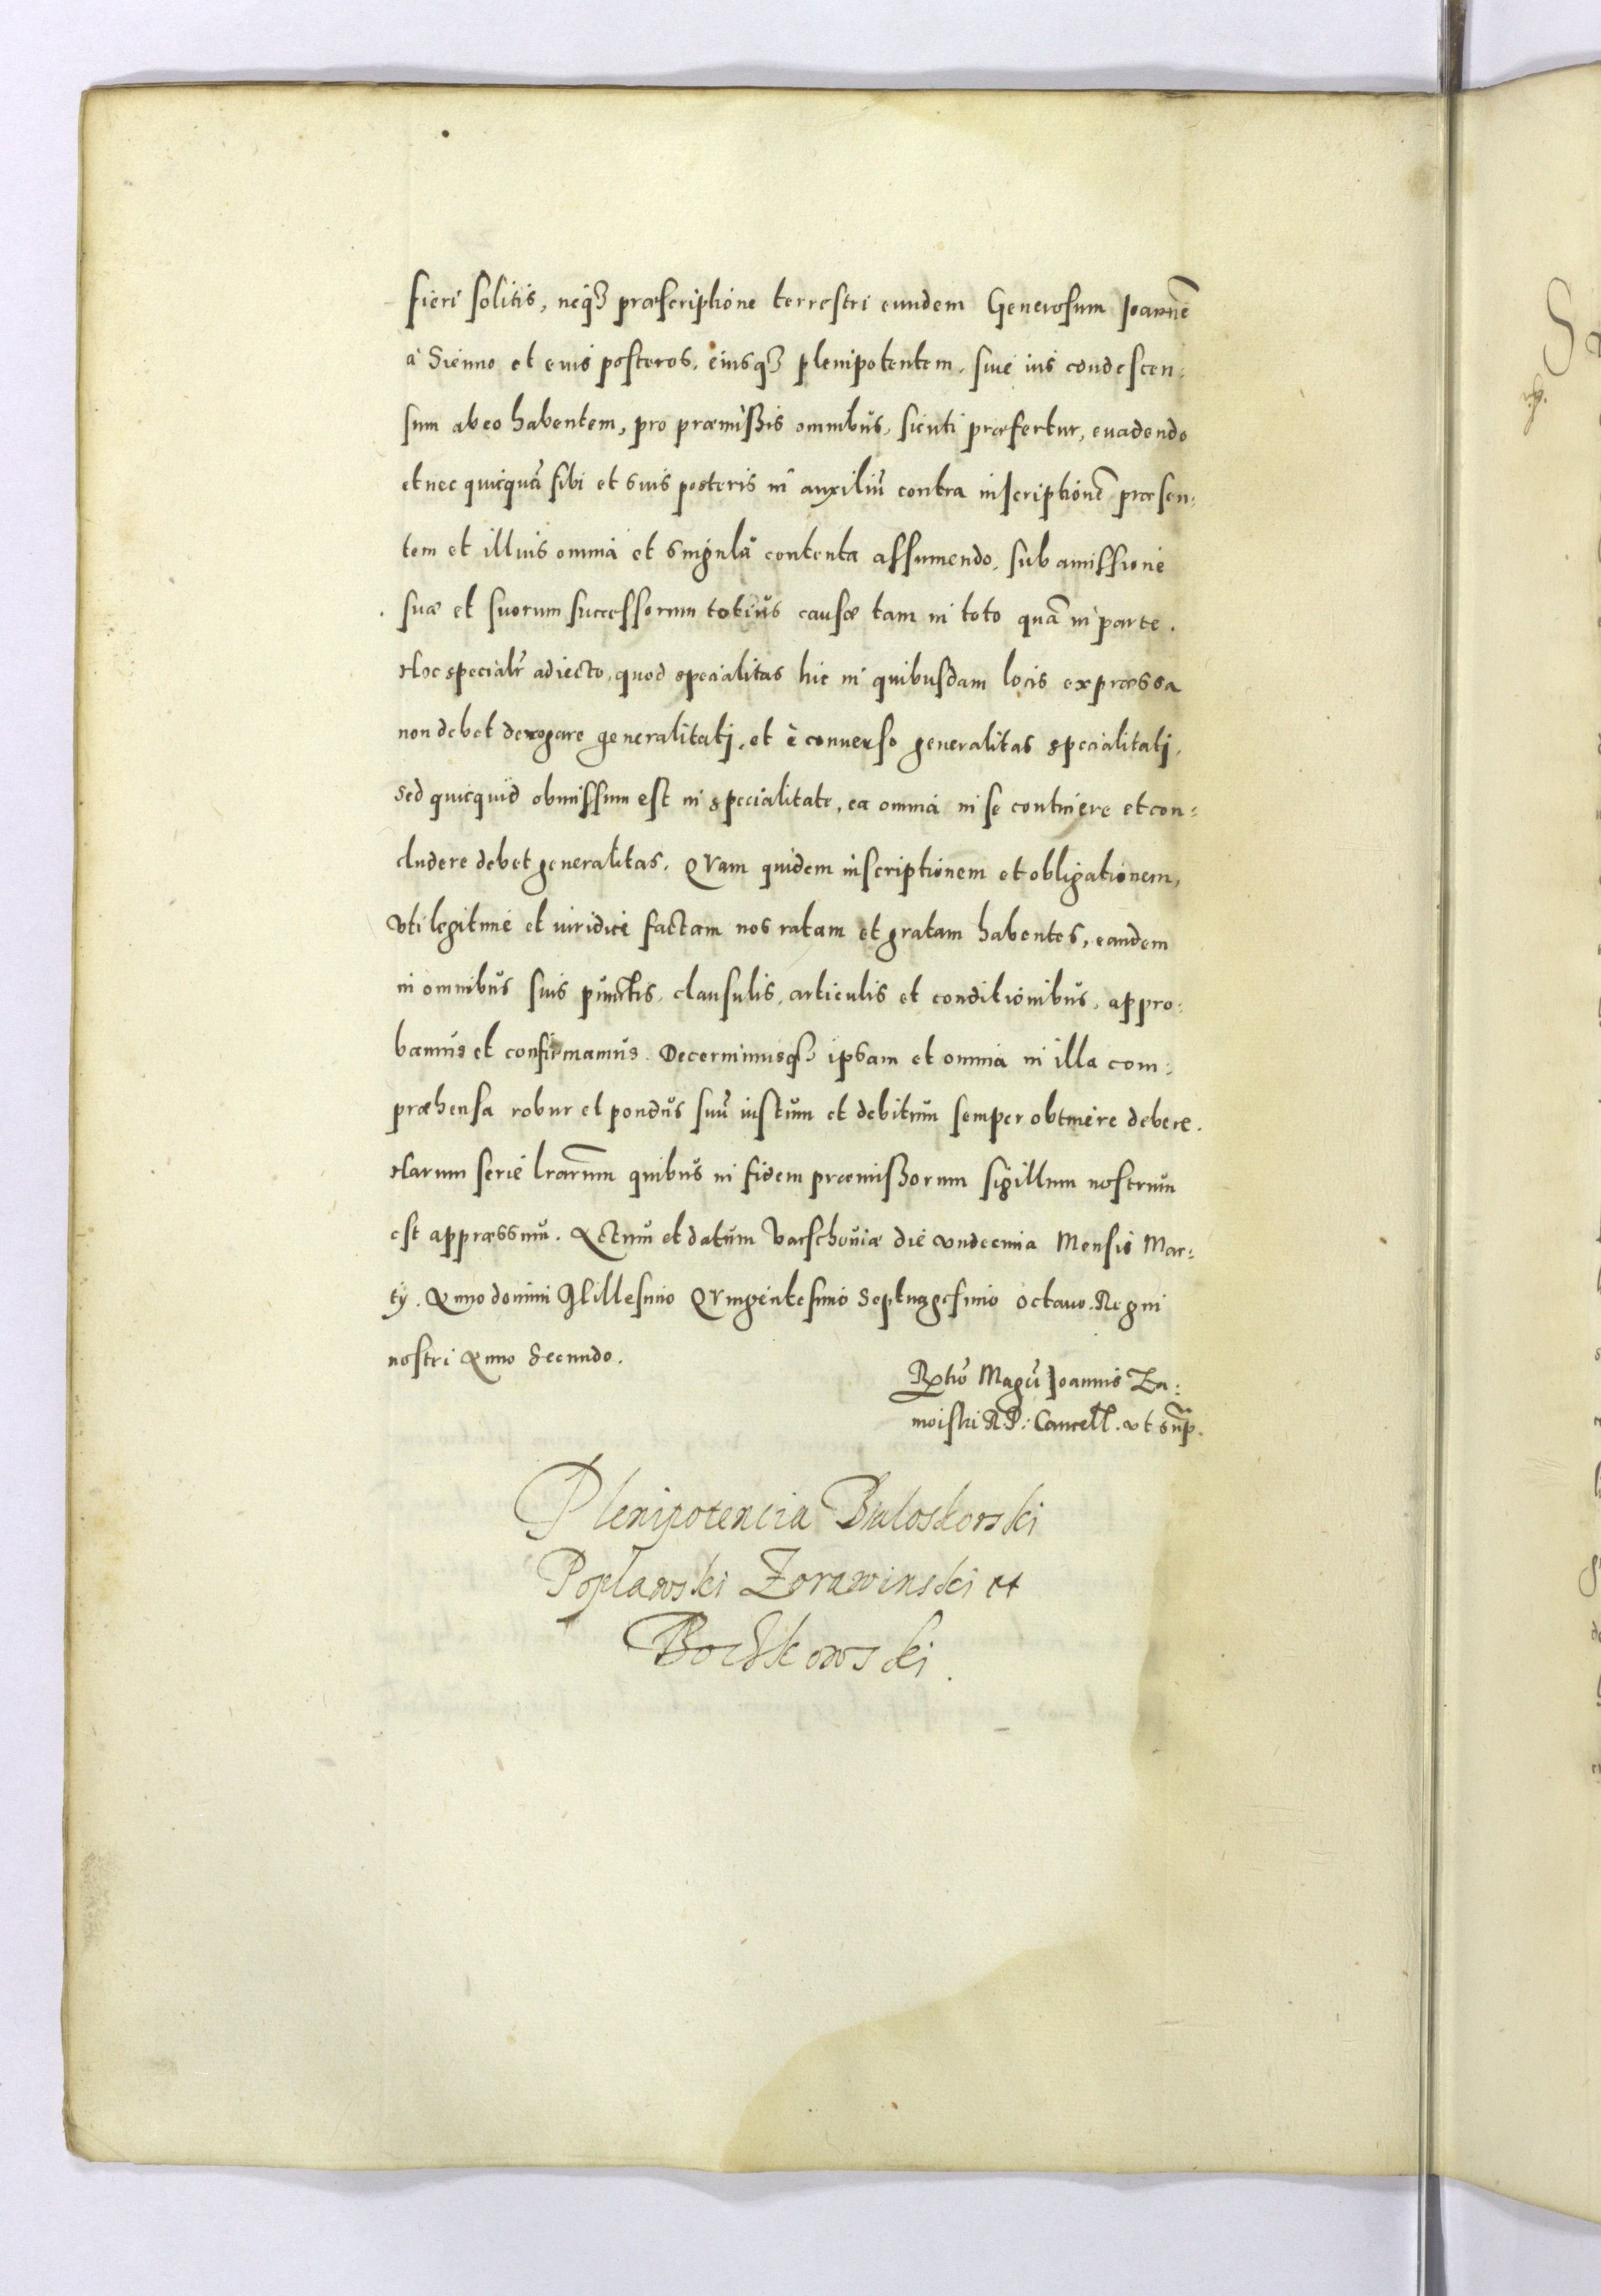 fieri solitis, neq3 præscriptione terrestri eundem Generosum Joannē
à Sienno et eius posteros, eiusq3 plenipotentem, siue ius condescen:
sum ab eo habentem, pro præmissis omnibus, sicuti præfertur, euadendo
et nec quicquā sibi et suis posteris in auxiliū contra inscriptionē præsen:
tem et illius omnia et singula contenta assumendo, sub amissione
suæ et suorum successorum totius causæ tam in toto quā in parte.
Hoc specialr adiecto, quod specialitas hic in quibusdam locis expræssa
non debet derogare generalitatj, et è conuerso generalitas specialitatj,
sed quicquid obmissum est in specialitate, ea omnia in se continere et con:
cludere debet generalitas. QVam quidem inscriptionem et obligationem,
vti legitime et iuridice factam nos ratam et gratam habentes, eandem
in omnibus suis punctis, clausulis, articulis et conditionibus, appro:
bamus et confirmamus. Decernimusq3 ipsam et omnia in illa com:
præhensa robur et pondus suū iustum et debitum semper obtinere debere.
Harum serie lrarum quibus in fidem præmissorum sigillum nostrum
est appræssum. Actum et datum Varschouiæ die vndecima Mensis Mar:
tij. Anno domini Millesimo QVingentesimo Septuagesimo octauo. Regni
nostri Anno Secundo.
Rtio Magci Joannis Za:
moiski R P: Cancell. vt sup.
Plenipotencia
Poplawski Zorawinski et